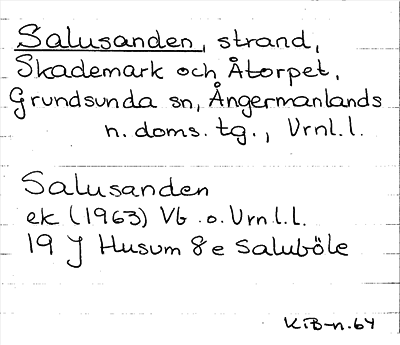 Salusanden, strand,
Skademark och Åtorpet,
Grundsunda sn, Ångermanlands
n. doms. tg., Vrnl.l.
Salusanden
ek (1963) Vb .o. Vrnl.l.
19 J Husum 8e Saluböle
KiB-n.64